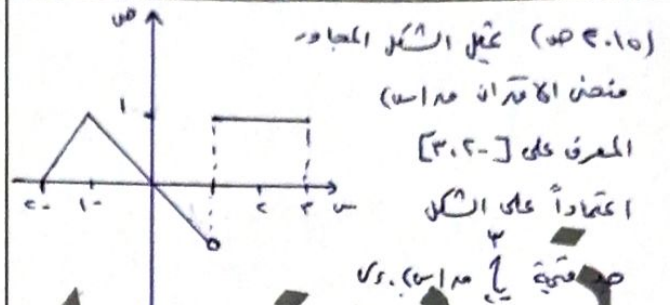 (٢٠١٥ ص) يمثل الشكل المجاور
منحنى الاقتران ق(س)
المعرف على [-٢، ٣]
اعتماداً على الشكل
جد قيمة ∫ ق(س) . دس
٣
-٢
ص
١
-٢ -١ ٢ ٣ س